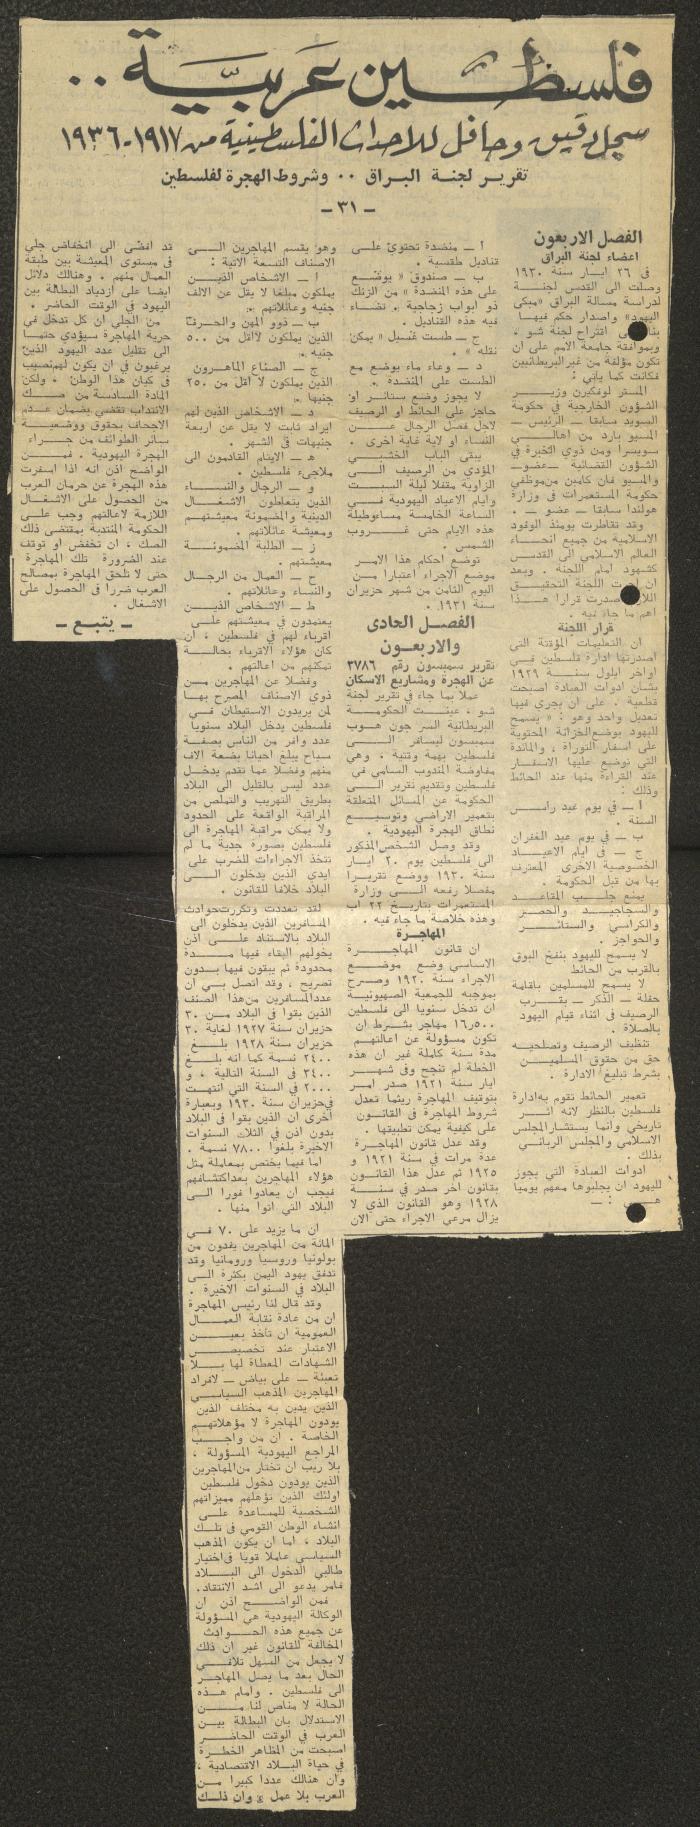 فلسطين عربية ..
سجل دقيق وحافل للاحداث الفلسطينية من ١٩١٧-١٩٣٦
تقرير لجنة البراق .. وشروط الهجرة لفلسطين
- ٣١ -
الفصل الاربعون
اعضاء لجنة البراق
فى ٢٦ ايار سنة ١٩٣٠
وصلت الى القدس لجنة
لدراسة مسالة البراق «مبكى
اليهود» واصدار حكم فيها
على اقتراح لجنة شو ،
وبموافقة جامعة الامم على ان
تكون مؤلفة من غير البريطانيين
فكانت كما يأتي :
المستر لوفكيرن وزير
الشؤون الخارجية في حكومة
السويد سابقا — الرئيس —
المسيو بارد من اهالي
سويسرا ومن ذوي الخبرة في
الشؤون القضائية — عضو —
والمسيو فان كامبن من موظفي
حكومة المستعمرات في وزارة
هولندا سابقا — عضو — .
وقد تقاطرت يومئذ الوفود
الاسلامية من جميع انحاء
العالم الاسلامي الى القدس
كشهود امام اللجنة . وبعد
ان اجرت اللجنة التحقيق
صدرت قرارا هذا
اهم ما جاء فيه .
قرار اللجنة
ان التعليمات المؤقتة التي
اصدرتها ادارة فلسطين في
اواخر ايلول سنة ١٩٢٩
بشأن ادوات العبادة اصبحت
قطعية . على ان يجري فيها
تعديل واحد وهو : « يسمح
لليهود بوضع الخزانة المحتوية
على اسفار التوراة ، والمائدة
التي توضع عليها الاسفار
عند القراءة منها عند الحائط
وذلك :
أ — في يوم عيد راس
السنة .
ب — في يوم عيد الغفران
ج — في ايام الاعياد
الخصوصية الاخرى المعترف
بها من قبل الحكومة .
يمنع جلب المقاعد
والسجاجيد والحصر
والكراسي والستائر
والحواجز .
لا يسمح لليهود بنفخ البوق
بالقرب من الحائط
لا يسمح للمسلمين باقامة
حفلة — الذكر — بقرب
الرصيف في اثناء قيام اليهود
بالصلاة .
تنظيف الرصيف وتصليحه
حق من حقوق المسلمين
بشرط تبليغ الادارة .
تعمير الحائط تقوم به ادارة
فلسطين بالنظر لانه اثر
تاريخي وانما يستشار المجلس
الاسلامي والمجلس الرباني
بذلك .
ادوات العبادة التي يجوز
لليهود ان يجلبوها معهم يوميا
هي : —
أ — منضدة تحتوي على
قناديل طقسية .
ب — صندوق « يوضع
على هذه المنضدة » من الزنك
ذو ابواب زجاجية . تضاء
فيه هذه القناديل .
ج — طست غسيل « يمكن
نقله » .
د — وعاء ماء يوضع مع
الطست على المنضدة .
لا يجوز وضع ستائر او
حاجز على الحائط او الرصيف
لاجل فصل الرجال عن
النساء او لاية غاية اخرى .
يبقى الباب الخشبي
المؤدي من الرصيف الى
الزاوية مقفلا ليلة السبت
وايام الاعياد اليهودية في
الساعة الخامسة مساء وطيلة
هذه الايام حتى غروب
الشمس .
توضع احكام هذا الامر
موضع الاجراء اعتبارا من
اليوم الثامن من شهر حزيران
سنة ١٩٣١ .
الفصل الحادى
والاربعون
تقرير سمبسون رقم ٣٧٨٦
عن الهجرة ومشاريع الاسكان
عملا بما جاء في تقرير لجنة
شو ، عينت الحكومة
البريطانية السر جون هوب
سمبسون ليسافر الى
فلسطين بهمة وقتية . وهي
مفاوضة المندوب السامي في
فلسطين وتقديم تقرير الى
الحكومة عن المسائل المتعلقة
بتعمير الاراضي وتوسيع
نطاق الهجرة اليهودية .
وقد وصل الشخص المذكور
الى فلسطين يوم ٢٠ ايار
سنة ١٩٣٠ ووضع تقريرا
مفصلا رفعه الى وزارة
المستعمرات بتاريخ ٢٢ اب
وهذه خلاصة ما جاء فيه .
المهاجرة
ان قانون المهاجرة
الاساسي وضع موضع
الاجراء سنة ١٩٢٠ وصرح
بموجبه للجمعية الصهيونية
ان تدخل سنويا الى فلسطين
١٦٥٠٠ مهاجر بشرط ان
تكون مسؤولة عن اعالتهم
مدة سنة كاملة غير ان هذه
الخطة لم تنجح وفى شهر
ايار سنة ١٩٢١ صدر امر
بتوقيف المهاجرة ريثما تعدل
شروط المهاجرة فى القانون
على كيفية يمكن تطبيقها .
وقد عدل قانون المهاجرة
عدة مرات في سنة ١٩٢١ و
١٩٢٥ ثم عدل هذا القانون
بقانون اخر صدر في سنة
١٩٢٨ وهو القانون الذي لا
يزال مرعي الاجراء حتى الان
وهو يقسم المهاجرين الى
الاصناف التسعة الاتية :
أ — الاشخاص الذين
يملكون مبلغا لا يقل عن الالف
جنيه وعائلاتهم .
ب — ذوو المهن والحرف
الذين يملكون لا اقل من ٥٠٠
جنيه .
ج — الصناع الماهرون
الذين يملكون لا اقل من ٢٥٠
جنيها .
د — الاشخاص الذين لهم
ايراد ثابت لا يقل عن اربعة
جنيهات في الشهر .
هـ — الايتام القادمون الى
ملاجىء فلسطين .
و — الرجال والنساء
الذين يتعاطون الاشغال
الدينية والمضمونة معيشتهم
ومعيشة عائلاتهم .
ز — الطلبة المضمونة
معيشتهم .
ح — العمال من الرجال
والنساء وعائلاتهم .
ط — الاشخاص الذين
يعتمدون في معيشتهم على
اقرباء لهم في فلسطين ، ان
كان هؤلاء الاقرباء بحالة
تمكنهم من اعالتهم .
وفضلا عن المهاجرين من
ذوي الاصناف المصرح بها
لمن يريدون الاستيطان في
فلسطين يدخل البلاد سنويا
عدد وافر من الناس بصفة
سياح يبلغ احيانا بضعة الاف
منهم وفضلا عما تقدم يدخل
عدد ليس بالقليل الى البلاد
بطريق التهريب والتملص من
المراقبة الواقعة على الحدود
ولا يمكن مراقبة المهاجرة الى
فلسطين بصورة جدية ما لم
تتخذ الاجراءات للضرب على
ايدي الذين يدخلون الى
البلاد خلافا للقانون .
لقد تعددت وتكررت حوادث
المسافرين الذين يدخلون الى
البلاد بالاستناد على اذن
يخولهم البقاء فيها مدة
محدودة ثم يبقون فيها بدون
تصريح ، وقد اتصل بي ان
عدد المسافرين من هذا الصنف
الذين بقوا في البلاد من ٣٠
حزيران سنة ١٩٢٧ لغاية ٣٠
حزيران سنة ١٩٢٨ بلغ
٢٤٠٠ نسمة كما انه بلغ
٣٤٠٠ في السنة التالية ، و
٢٠٠٠ في السنة التي انتهت
في حزيران سنة ١٩٣٠ وبعبارة
اخرى ان الذين بقوا في البلاد
بدون اذن في الثلاث السنوات
الاخيرة بلغوا ٧٨٠٠ نسمة .
اما فيما يختص بمعاملة مثل
هؤلاء المهاجرين بعد اكتشافهم
فيجب ان يعادوا فورا الى
البلاد التي اتوا منها .
ان ما يزيد على ٧٠ في
المائة من المهاجرين يفدون من
بولونيا وروسيا ورومانيا وقد
تدفق يهود اليمن بكثرة الى
البلاد في السنوات الاخيرة .
وقد قال لنا رئيس المهاجرة
ان من عادة نقابة العمال
العمومية ان تأخذ بعين
الاعتبار عند تخصيص
الشهادات المعطاة لها بلا
تعبئة — على بياض — لافراد
المهاجرين المذهب السياسي
الذين يدين به مختلف الذين
يودون المهاجرة لا مؤهلاتهم
الخاصة . ان من واجب
المراجع اليهودية المسؤولة ،
بلا ريب ان تختار من المهاجرين
الذين يودون دخول فلسطين
اولئك الذين تؤهلهم مميزاتهم
الشخصية للمساعدة على
انشاء الوطن القومي في تلك
البلاد ، اما ان يكون المذهب
السياسي عاملا قويا فى اختيار
طالبي الدخول الى البلاد
فامر يدعو الى اشد الانتقاد .
فمن الواضح اذن ان
الوكالة اليهودية هي المسؤولة
عن جميع هذه الحوادث
المخالفة للقانون غير ان ذلك
لا يجعل من السهل تلافي
الحال بعد ما يصل المهاجر
الى فلسطين . وامام هذه
الحالة لا مناص لنا من
الاستدلال بان البطالة بين
العرب في الوقت الحاضر
اصبحت من المظاهر الخطرة
في حياة البلاد الاقتصادية ،
وان هنالك عددا كبيرا من
العرب بلا عمل ، وان ذلك
قد افضى الى انخفاض جلي
في مستوى المعيشة بين طبقة
العمال منهم . وهنالك دلائل
ايضا على ازدياد البطالة بين
اليهود في الوقت الحاضر .
من الجلي ان كل تدخل في
حرية المهاجرة سيؤدي حتما
الى تقليل عدد اليهود الذين
يرغبون في ان يكون لهم نصيب
في كيان هذا الوطن . ولكن
المادة السادسة من صك
الانتداب تقضي بضمان عدم
الاجحاف بحقوق ووضعية
سائر الطوائف من جراء
الهجرة اليهودية . فمن
الواضح اذن انه اذا اسفرت
هذه الهجرة عن حرمان العرب
من الحصول على الاشغال
اللازمة لاعالتهم وجب على
الحكومة المنتدبة بمقتضى ذلك
الصك ، ان تخفض او توقف
عند الضرورة تلك المهاجرة
حتى لا تلحق المهاجرة بمصالح
العرب ضررا في الحصول على
الاشغال .
— يتبع —